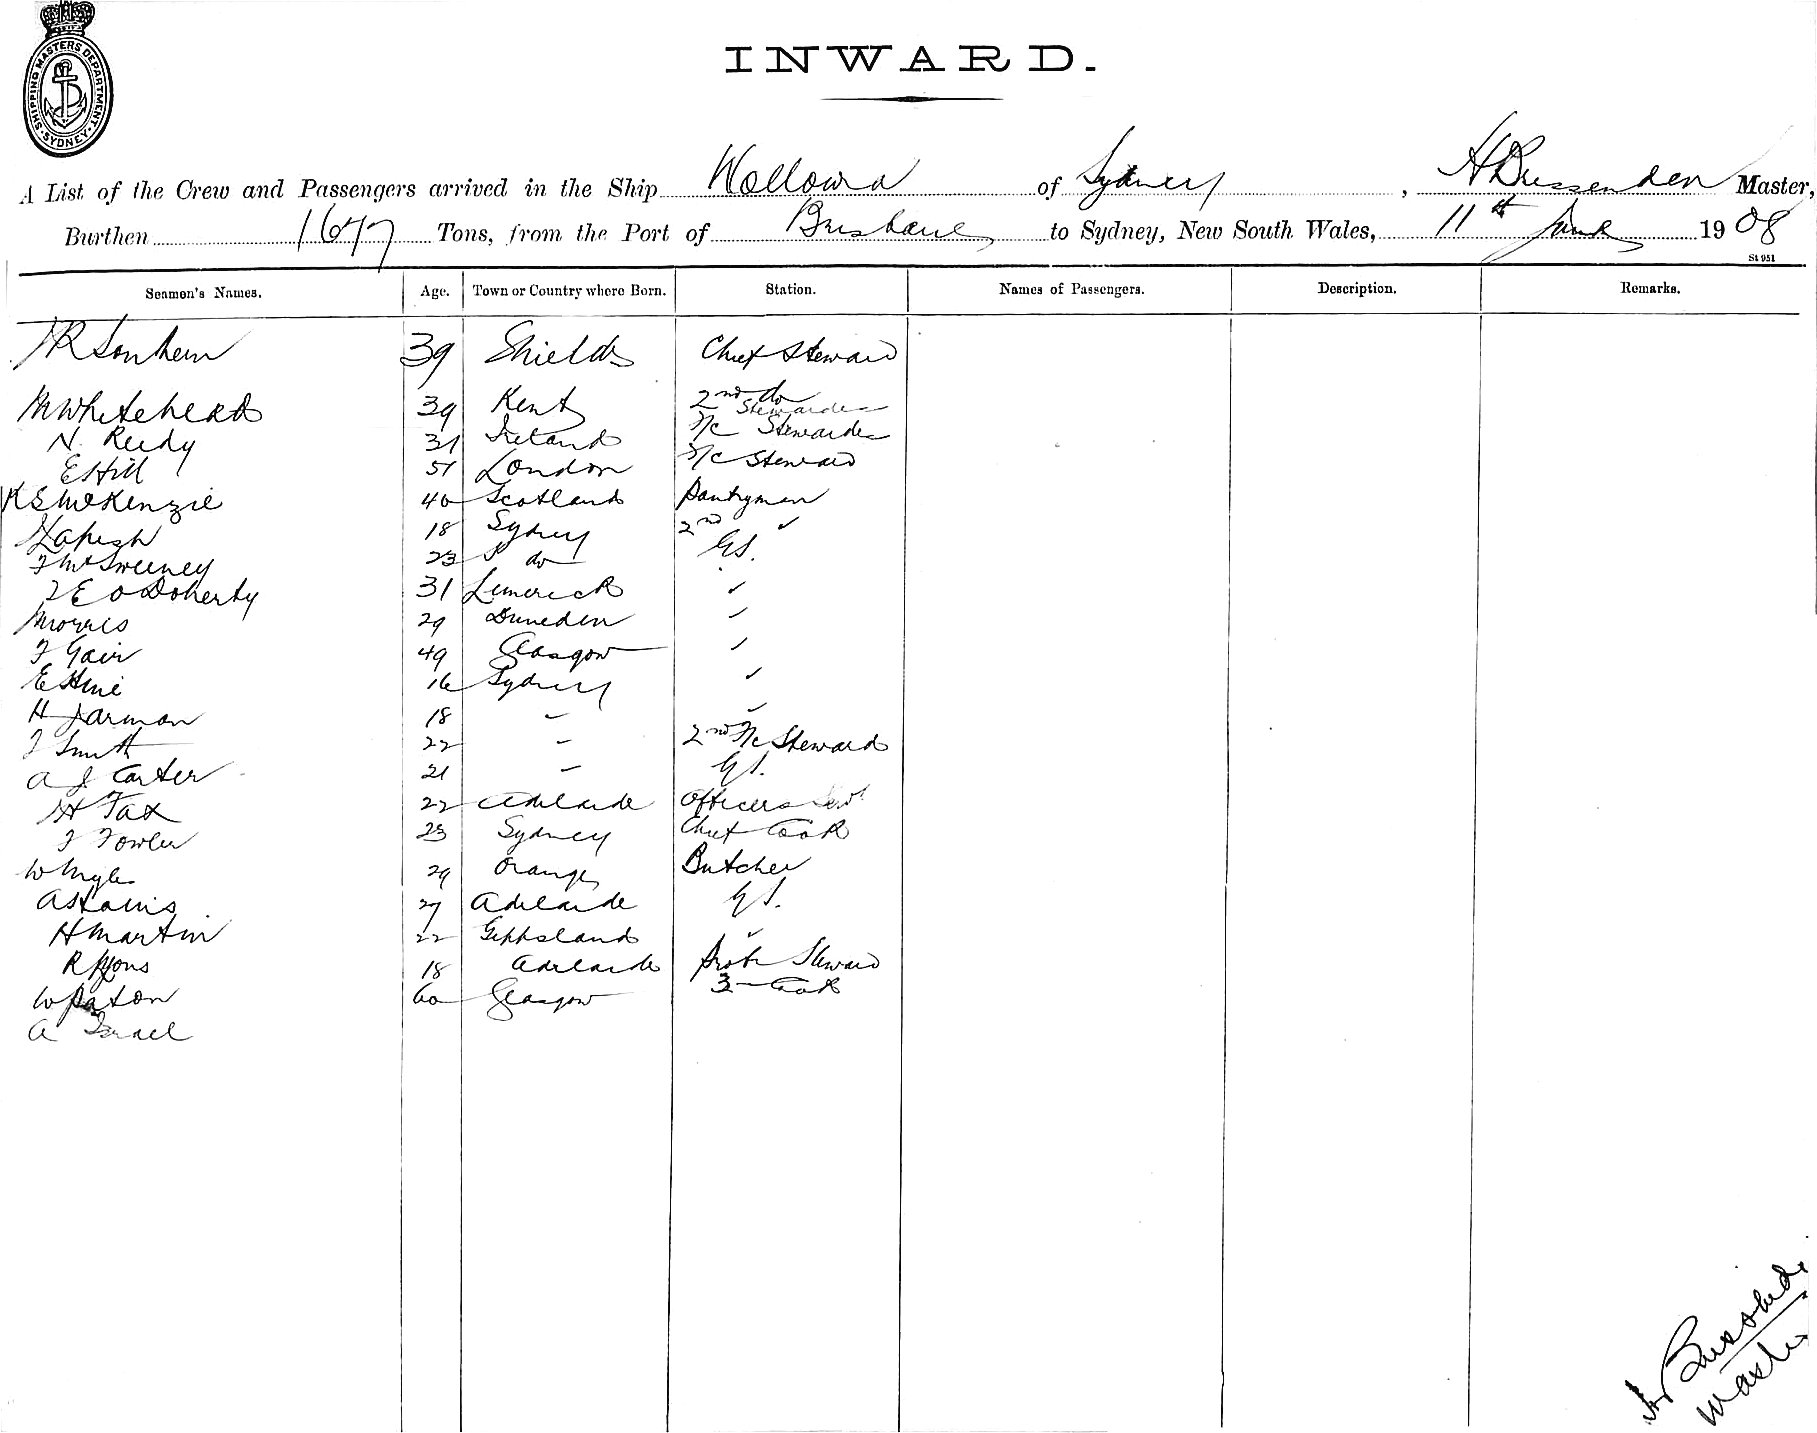 SHIPPING MASTERS DEPARTMENT · SYDNEY ·
INWARD.
A List of the Crew and Passengers arrived in the Ship Wollowra of Sydney, Master,
Burthen Tons, from the Port of Brisbane to Sydney, New South Wales, 11th 1908
St 951
Seamen's Names. Age. Town or Country where Born. Station. Names of Passengers. Description. Remarks.
39 Shields Chief Steward
M Whitehead 39 Kent 2nd do
Stewardess
N. Reedy 31 Ireland F/c Stewardess
E Hill 51 London S/c Steward
K S McKenzie 40 Scotland Pantryman
18 Sydney 2nd "
F McSweeney 23 do G.S.
J E O Doherty 31 Limerick "
Morris 29 Dunedin "
F Gair 49 Glasgow "
E Hine 16 Sydney "
H Jarman 18 " "
J Smith 22 " 2nd F/c Steward
A J Carter 21 " G.S.
H Tax 22 Adelaide Officers Sevt
F Fowler 23 Sydney Chief Cook
29 Orange Butcher
27 Adelaide G.S.
H Martin 22 Gippsland "
18 Adelaide Steward
W Paton 60 Glasgow 3 Cook
A Israel
Master